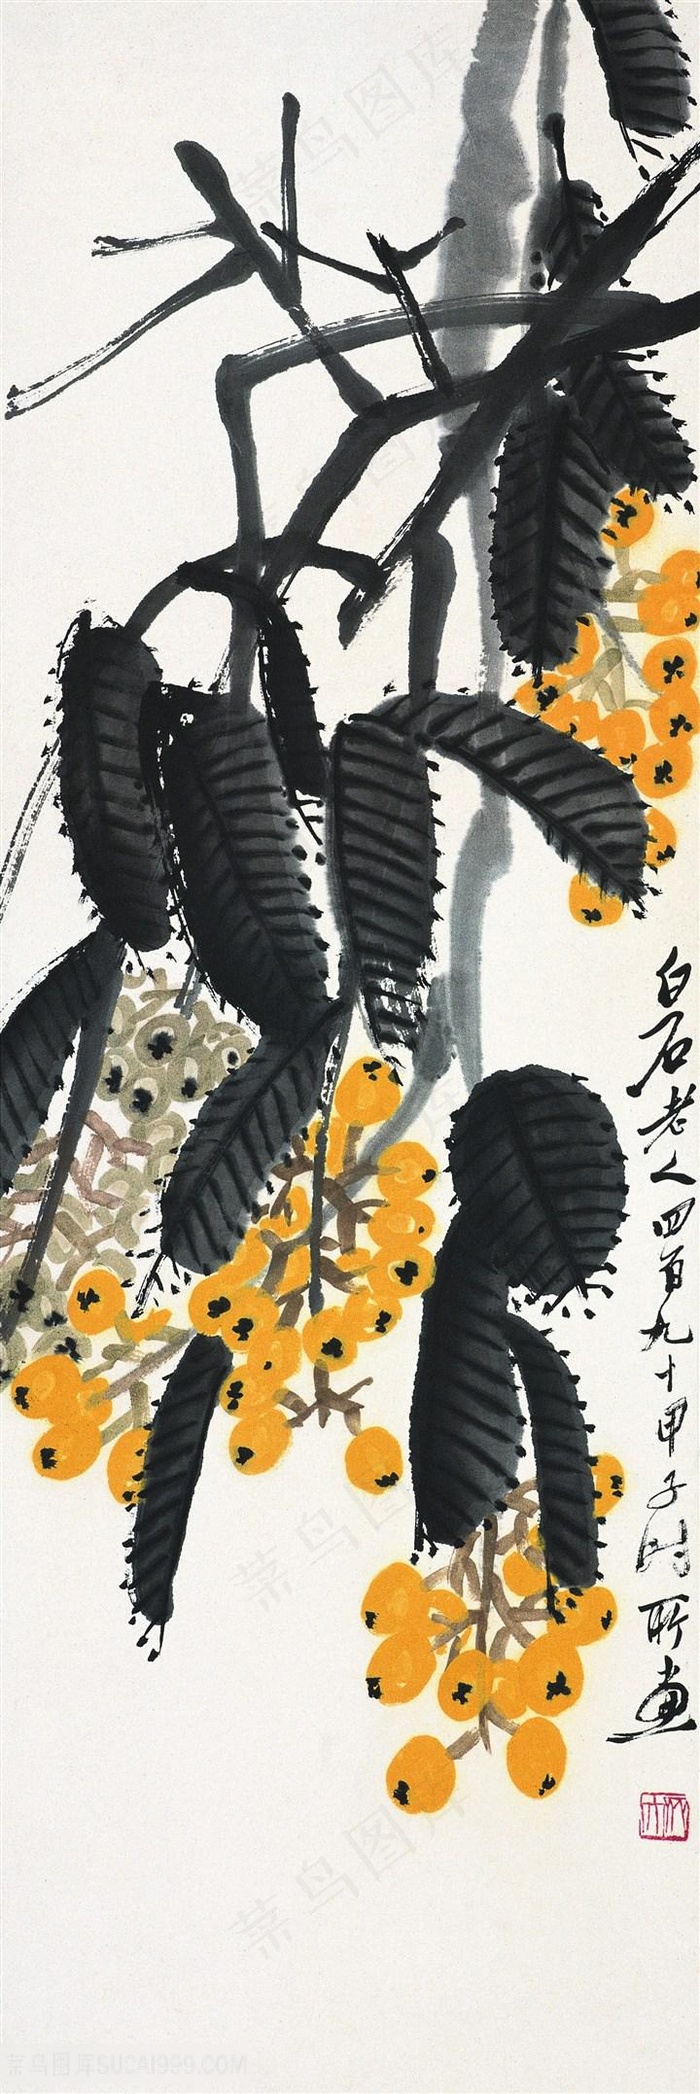 白石老人四百九十甲子时所画
木人
菜鸟图库
菜鸟图库
菜鸟图库
菜鸟图库
菜鸟图库SUCAI999.COM